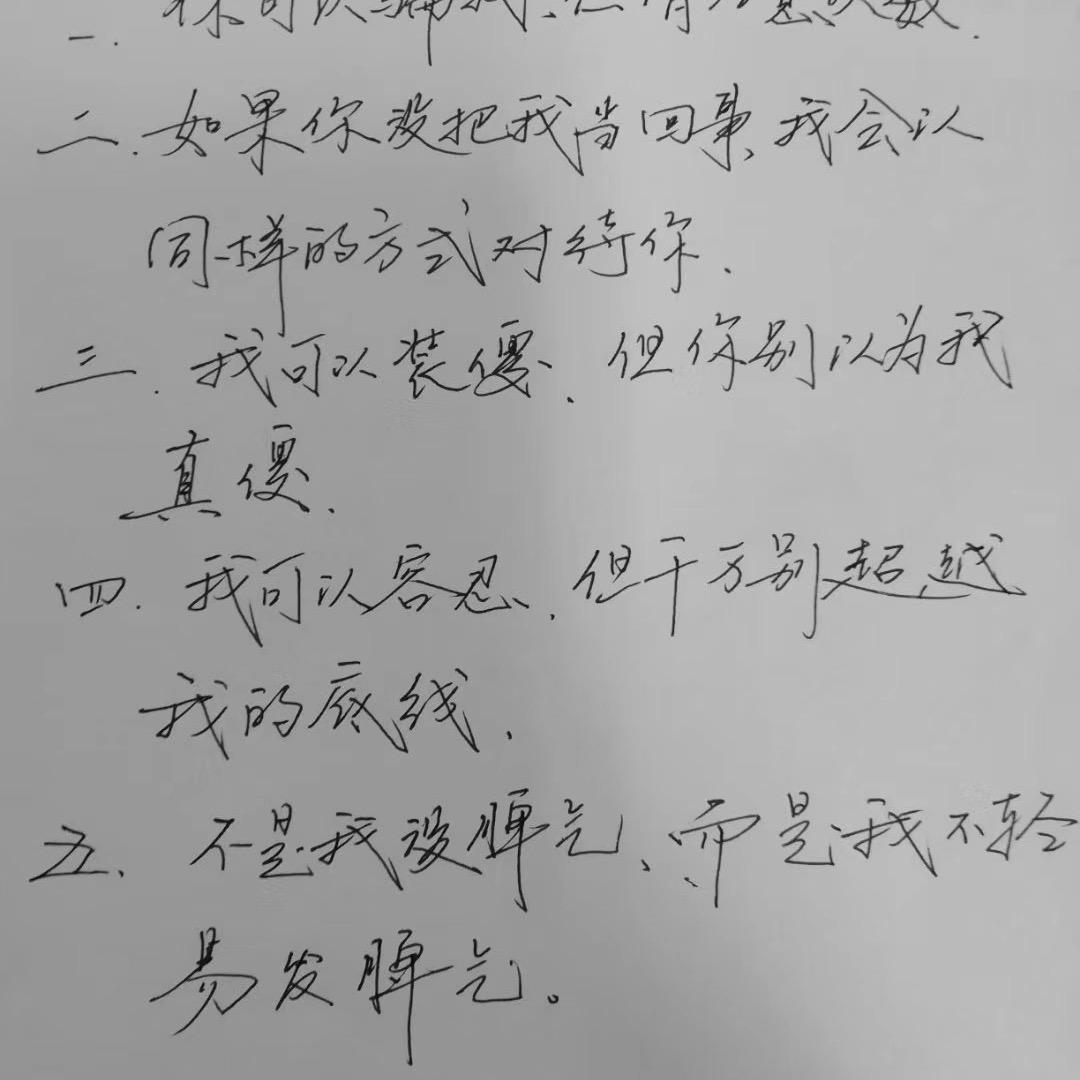 一. 你可以骗我、但请注意次数.
二. 如果你没把我当回事、我会以
同样的方式对待你.
三. 我可以装傻、但你别以为我
真傻.
四. 我可以容忍、但千万别超越
我的底线.
五. 不是我没脾气、而是我不轻
易发脾气。